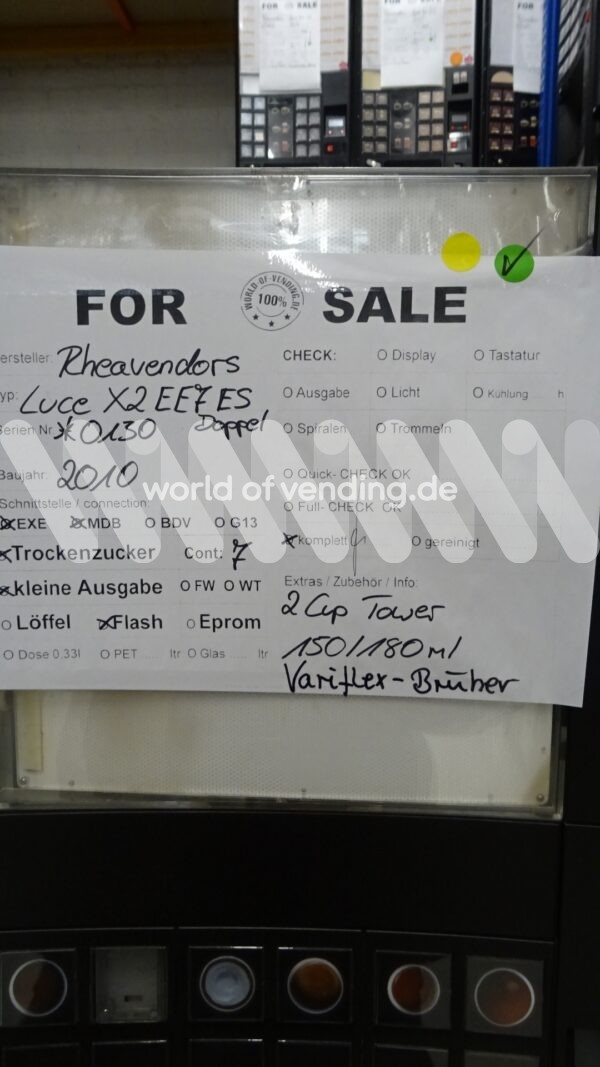 FOR SALE
FOR SALE
FOR
FOR SALE
WORLD-OF-VENDING.DE
100%
ersteller: Rheavendors
yp: Luce X2 EE7 ES
Doppel
erien Nr. 0130
Baujahr: 2010
Schnittstelle / connection:
EXE MDB O BDV O G13
Trockenzucker Cont: 7
kleine Ausgabe O FW O WT
O Löffel Flash O Eprom
O Dose 0.33l O PET ..... ltr O Glas ..... ltr
CHECK: O Display O Tastatur
O Ausgabe O Licht O Kühlung ..... h
O Spiralen O Trommeln
O Quick- CHECK OK
O Full- CHECK OK
komplett O gereinigt
Extras / Zubehör / Info:
2 Cup Tower
150/180 ml
Variflex-Brüher
world of vending.de